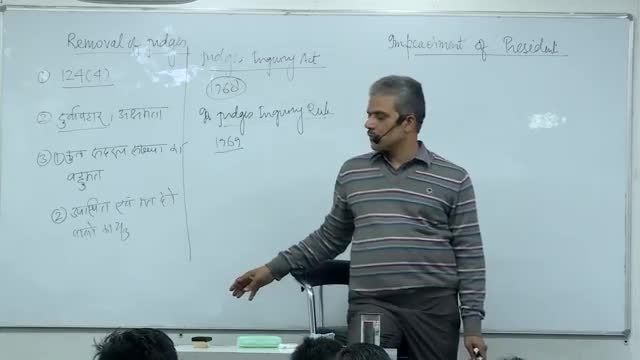 Removal of judges
① 124(4)
② दुर्व्यवहार, अक्षमता
③ ① कुल सदस्य संख्या का
बहुमत
② उपस्थित एवं मत देने
वालों का 2/3
Judges Inquiry Act
1968
Judges Inquiry Rule
1969
Impeachment of President